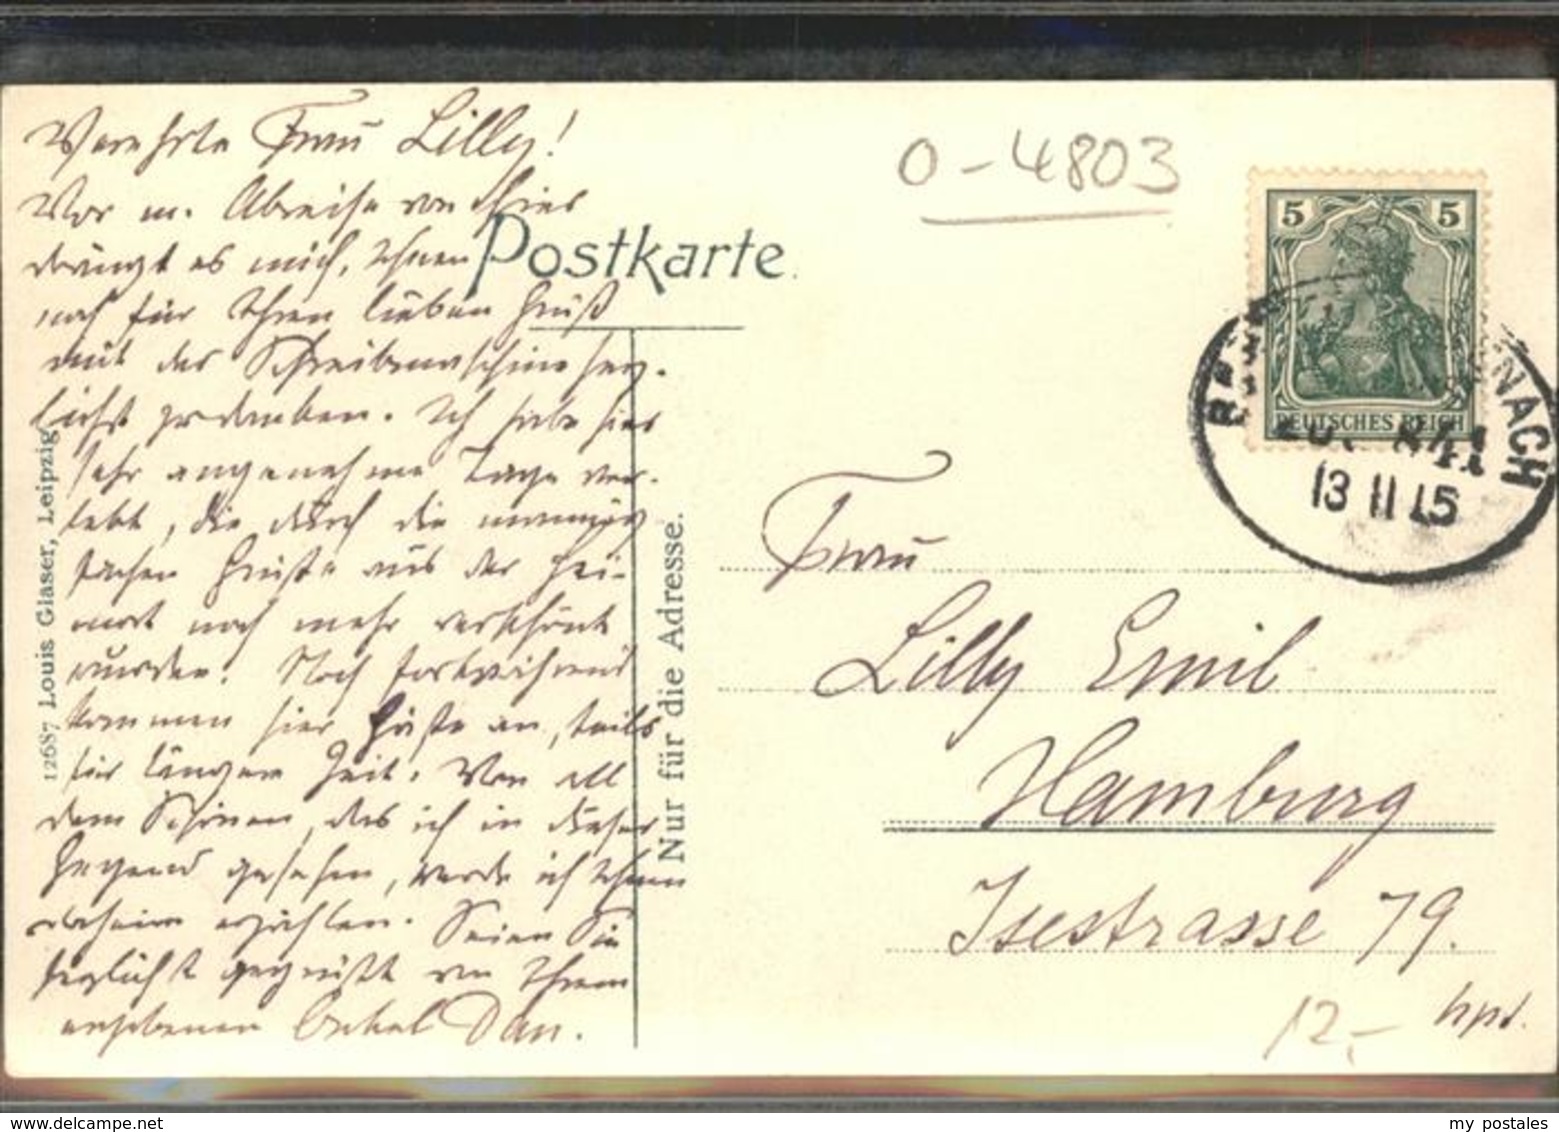 Verehrte Frau Lilly!
Vor m. Abreise von hier
drängt es mich, Ihnen
noch für Ihren lieben Gruß
mit der Schreibmaschine herz-
lichst zu danken. Ich habe hier
sehr angenehme Tage ver-
lebt, die durch die
fachen Grüße aus der Hei-
mat noch mehr verschönt
wurden. Noch fortwährend
kommen hier Gäste an, teils
für längere Zeit. Von all
dem Schönen, das ich in dieser
Gegend gesehen, werde ich Ihnen
daheim erzählen. Seien Sie
herzlichst gegrüßt von Ihrem
ergebenen Onkel Dan.
Postkarte
12687 Louis Glaser, Leipzig
Nur für die Adresse.
0-4803
5 5
DEUTSCHES REICH
13 11 15
Frau
Lilly Emil
Hamburg
Isestrasse 79.
12,-
hpd.
delcampe.net
my_postales